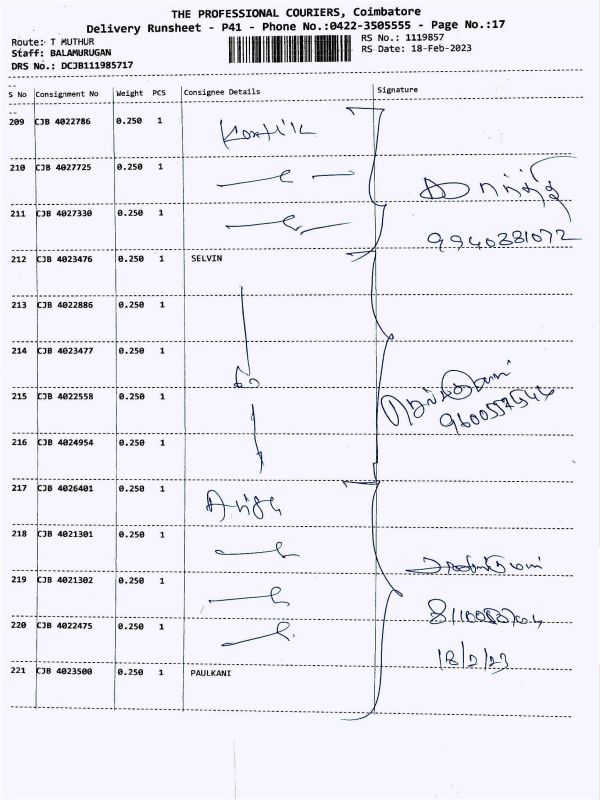 THE PROFESSIONAL COURIERS, Coimbatore
Delivery Runsheet - P41 - Phone No.:0422-3505555 - Page No.:17
Route: T MUTHUR
RS No.: 1119857
Staff: BALAMURUGAN
RS Date: 18-Feb-2023
DRS No.: DCJB111985717
S No Consignment No Weight PCS Consignee Details Signature
209 CJB 4022786 0.250 1
210 CJB 4027725 0.250 1
211 CJB 4027330 0.250 1
9940381072
212 CJB 4023476 0.250 1 SELVIN
213 CJB 4022886 0.250 1
214 CJB 4023477 0.250 1
215 CJB 4022558 0.250 1
216 CJB 4024954 0.250 1
217 CJB 4026401 0.250 1
218 CJB 4021301 0.250 1
219 CJB 4021302 0.250 1
220 CJB 4022475 0.250 1
18/2/23
221 CJB 4023500 0.250 1 PAULKANI